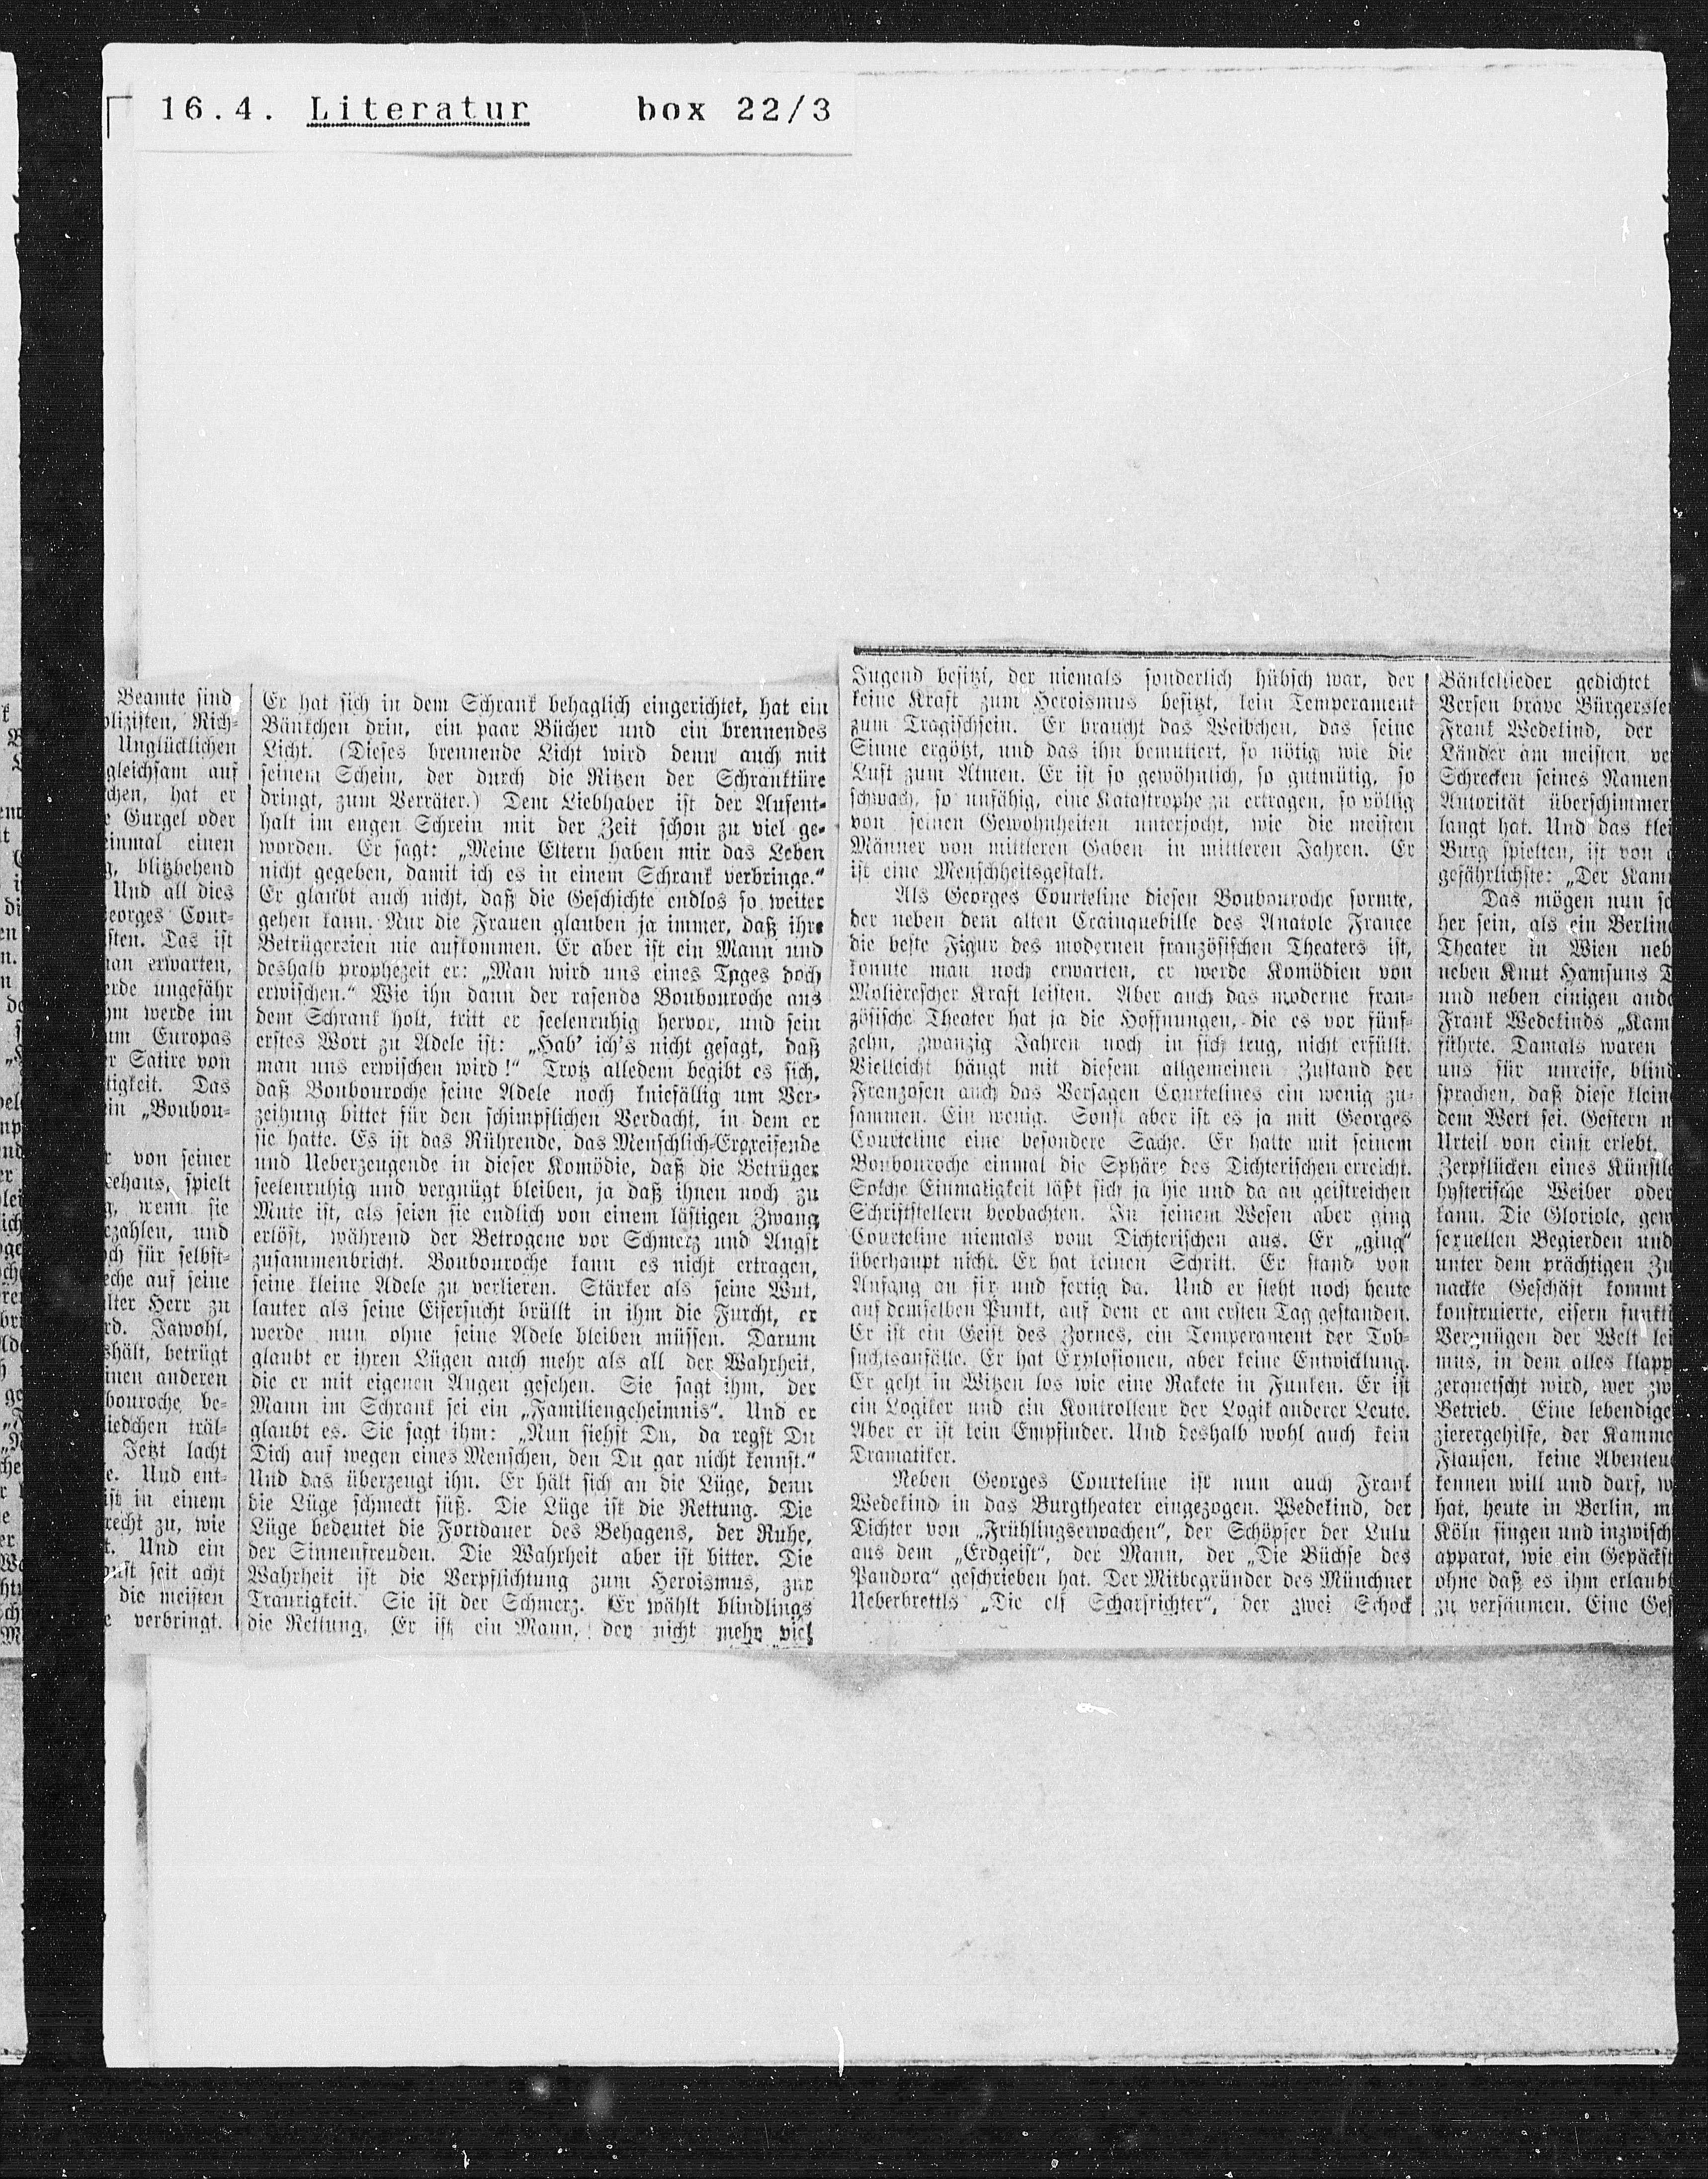 16.4. Literatur box 22/3
Beamte sind
olizisten, Rich-
Unglücklichen
gleichsam auf
chen, hat er
e Gurgel oder
einmal einen
g, blitzbehend
Und all dies
eorges Cour-
sten. Das ist
nan erwarten,
erde ungefähr
hm werde im
um Europas
er Satire von
tigkeit. Das
ein „Boubou-
r von seiner
eehaus, spielt
g, wenn sie
ezahlen, und
och für selbst-
eche auf seine
lter Herr zu
rd. Jawohl,
shält, betrügt
inen anderen
bouroche be-
liedchen träl-
Jetzt lacht
e. Und ent-
ist in einem
recht zu, wie
t. Und ein
onst seit acht
die meisten
e verbringt.
Er hat sich in dem Schrank behaglich eingerichtet, hat ein
Bänkchen drin, ein paar Bücher und ein brennendes
Licht. (Dieses brennende Licht wird denn auch mit
seinem Schein, der durch die Ritzen der Schranktüre
dringt, zum Verräter.) Dem Liebhaber ist der Aufent-
halt im engen Schrein mit der Zeit schon zu viel ge-
worden. Er sagt: „Meine Eltern haben mir das Leben
nicht gegeben, damit ich es in einem Schrank verbringe."
Er glaubt auch nicht, daß die Geschichte endlos so weiter
gehen kann. Nur die Frauen glauben ja immer, daß ihre
Betrügereien nie aufkommen. Er aber ist ein Mann und
deshalb prophezeit er: „Man wird uns eines Tages doch
erwischen." Wie ihn dann der rasende Boubouroche aus
dem Schrank holt, tritt er seelenruhig hervor, und sein
erstes Wort zu Adele ist: „Hab' ich's nicht gesagt, daß
man uns erwischen wird!" Trotz alledem begibt es sich,
daß Boubouroche seine Adele noch kniefällig um Ver-
zeihung bittet für den schimpflichen Verdacht, in dem er
sie hatte. Es ist das Rührende, das Menschlich-Ergreifende
und Ueberzeugende in dieser Komödie, daß die Betrüger
seelenruhig und vergnügt bleiben, ja daß ihnen noch zu
Mute ist, als seien sie endlich von einem lästigen Zwang
erlöst, während der Betrogene vor Schmerz und Angst
zusammenbricht. Boubouroche kann es nicht ertragen,
seine kleine Adele zu verlieren. Stärker als seine Wut,
lauter als seine Eifersucht brüllt in ihm die Furcht, er
werde nun ohne seine Adele bleiben müssen. Darum
glaubt er ihren Lügen auch mehr als all der Wahrheit,
die er mit eigenen Augen gesehen. Sie sagt ihm, der
Mann im Schrank sei ein „Familiengeheimnis". Und er
glaubt es. Sie sagt ihm: „Nun siehst Du, da regst Du
Dich auf wegen eines Menschen, den Du gar nicht kennst."
Und das überzeugt ihn. Er hält sich an die Lüge, denn
die Lüge schmeckt süß. Die Lüge ist die Rettung. Die
Lüge bedeutet die Fortdauer des Behagens, der Ruhe,
der Sinnenfreuden. Die Wahrheit aber ist bitter. Die
Wahrheit ist die Verpflichtung zum Heroismus, zur
Traurigkeit. Sie ist der Schmerz. Er wählt blindlings
die Rettung. Er ist ein Mann, der nicht mehr viel
Jugend besitzt, der niemals sonderlich hübsch war, der
keine Kraft zum Heroismus besitzt, kein Temperament
zum Tragischsein. Er braucht das Weibchen, das seine
Sinne ergötzt, und das ihn bemuttert, so nötig wie die
Luft zum Atmen. Er ist so gewöhnlich, so gutmütig, so
schwach, so unfähig, eine Katastrophe zu ertragen, so völlig
von seinen Gewohnheiten unterjocht, wie die meisten
Männer von mittleren Gaben in mittleren Jahren. Er
ist eine Menschheitsgestalt.
Als Georges Courteline diesen Boubouroche formte,
der neben dem alten Crainquebille des Anatole France
die beste Figur des modernen französischen Theaters ist,
konnte man noch erwarten, er werde Komödien von
Molièrescher Kraft leisten. Aber auch das moderne fran-
zösische Theater hat ja die Hoffnungen, die es vor fünf-
zehn, zwanzig Jahren noch in sich trug, nicht erfüllt.
Vielleicht hängt mit diesem allgemeinen Zustand der
Franzosen auch das Versagen Courtelines ein wenig zu-
sammen. Ein wenig. Sonst aber ist es ja mit Georges
Courteline eine besondere Sache. Er hatte mit seinem
Boubouroche einmal die Sphäre des Dichterischen erreicht.
Solche Einmaligkeit läßt sich ja hie und da an geistreichen
Schriftstellern beobachten. In seinem Wesen aber ging
Courteline niemals vom Dichterischen aus. Er „ging"
überhaupt nicht. Er hat keinen Schritt. Er stand von
Anfang an fix und fertig da. Und er steht noch heute
auf demselben Punkt, auf dem er am ersten Tag gestanden.
Er ist ein Geist des Zornes, ein Temperament der Tob-
suchtsanfälle. Er hat Explosionen, aber keine Entwicklung.
Er geht in Witzen los wie eine Rakete in Funken. Er ist
ein Logiker und ein Kontrolleur der Logik anderer Leute.
Aber er ist kein Empfinder. Und deshalb wohl auch kein
Dramatiker.
Neben Georges Courteline ist nun auch Frank
Wedekind in das Burgtheater eingezogen. Wedekind, der
Dichter von „Frühlingserwachen", der Schöpfer der Lulu
aus dem „Erdgeist", der Mann, der „Die Büchse des
Pandora" geschrieben hat. Der Mitbegründer des Münchner
Ueberbrettls „Die elf Scharfrichter", der zwei Schock
Bänkellieder gedichtet
Versen brave Bürgersle
Frank Wedekind, der
Länder am meisten ve
Schrecken seines Namen
Autorität überschimmer
langt hat. Und das klei
Burg spielten, ist von
gefährlichste: „Der Kam
Das mögen nun se
her sein, als ein Berlin
Theater in Wien neb
neben Knut Hamsuns
und neben einigen ande
Frank Wedekinds „Kam
führte. Damals waren
uns für unreife, blind
sprachen, daß diese klein
dem Wert sei. Gestern
Urteil von einst erlebt.
Zerpflücken eines Künstle
hysterische Weiber oder
kann. Die Gloriole, gew
sexuellen Begierden und
unter dem prächtigen Zu
nackte Geschäft kommt
konstruierte, eisern funkti
Vergnügen der Welt lei
mus, in dem alles klapp
zerquetscht wird, wer zw
Betrieb. Eine lebendige
zierergehilfe, der Kamme
Flausen, keine Abenteu
kennen will und darf, w
hat, heute in Berlin, m
Köln singen und inzwisch
apparat, wie ein Gepäckst
ohne daß es ihm erlaubt
zu versäumen. Eine Ges